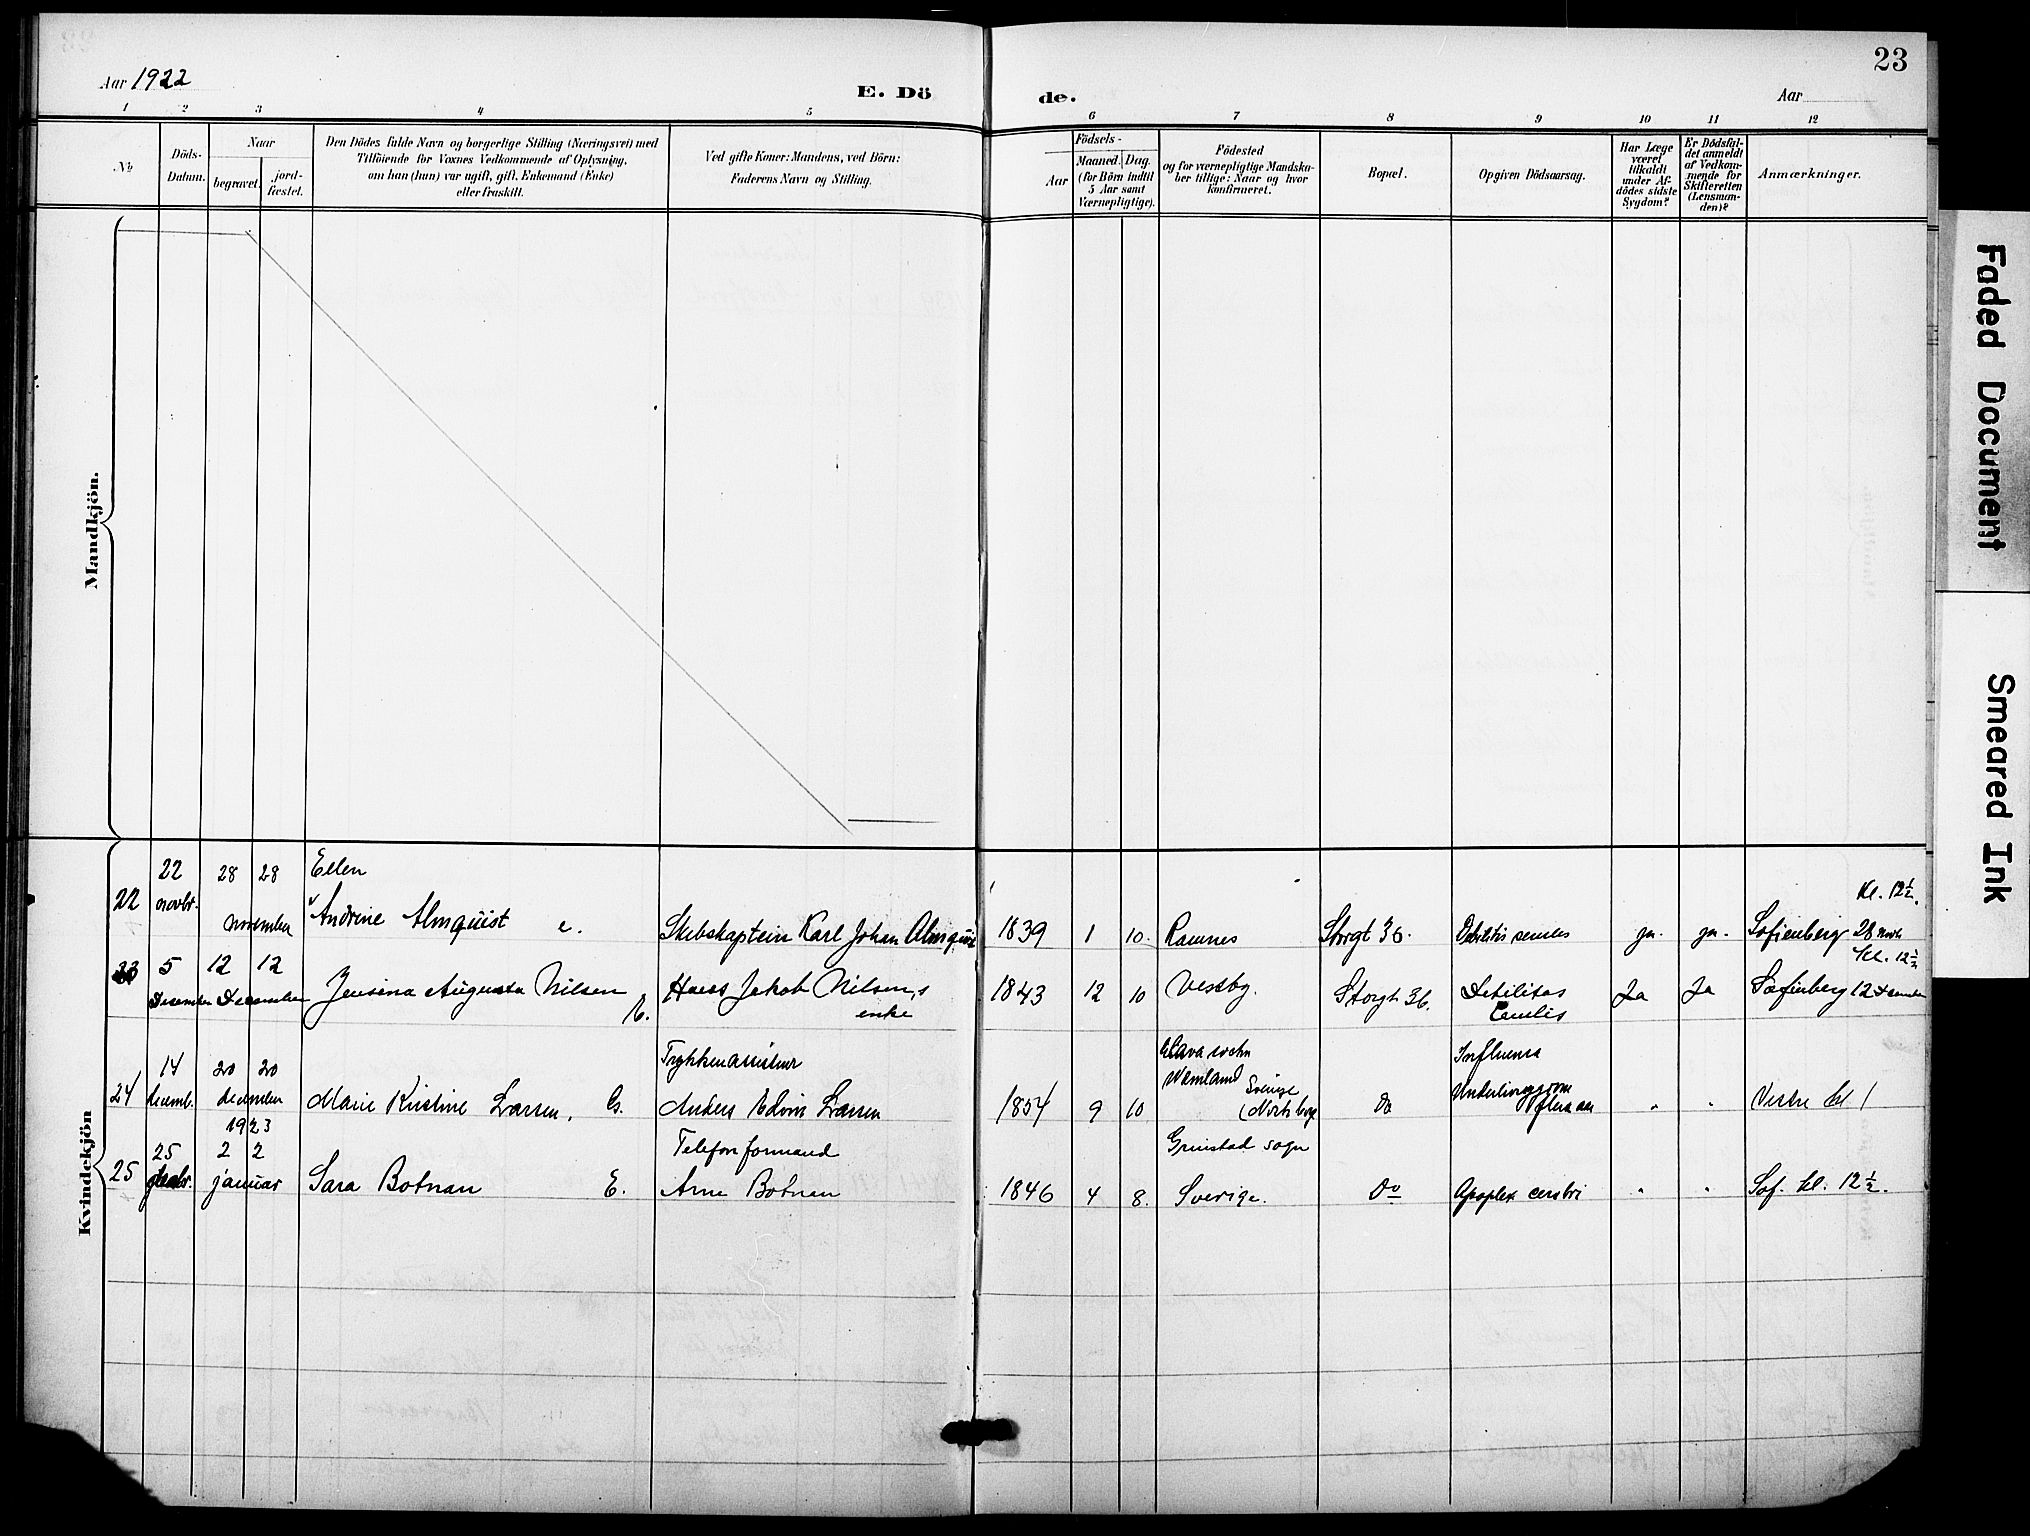 23
Aar 1922
E. Dö
de.
Aar
1 2 3 4 5 6 7 8 9 10 11 12
No.
Döds-
Datum.
Naar
begravet.
jord-
fæstet.
Den Dödes fulde Navn og borgerlige Stilling (Næringsvei) med
Tilföiende for Voxnes Vedkommende af Oplysning,
om han (hun) var ugift, gift, Enkemand (Enke)
eller fraskilt.
Ved gifte Koner: Mandens, ved Börn:
Faderens Navn og Stilling.
Födsels-
Aar
Maaned. Dag.
(for Börn indtil
5 Aar samt
Værnepligtige).
Födested
og for værnepligtige Mandska-
ber tillige: Naar og hvor
konfirmeret.
Bopæl.
Opgiven Dödsaarsag.
Har Læge
været
tilkaldt
under Af-
dödes sidste
Sygdom?
Er Dödsfal-
det anmeldt
af Vedkom-
mende for
Skifteretten
(Lensman-
den)?
Anmærkninger.
Mandkjön.
Kvindekjön
22 28 28 Ellen
kl. 12½.
22 novbr. november Andrine Almquist e. Skibskaptein Karl Johan Almquist 1839 1 10. Ramnes Storgt 36. Debilitas senilis ja. ja. Sofienberg 28 novb
kl. 12½
23 5 12 12
December December Jensina Augusta Nilsen E. Hans Jakob Nilsen,s 1843 12 10 Vestby. Storgt 36. Debilitas Ja Ja Sofienberg 12 December
enke
Senilis
14 20 20 Trykkeriassistent
Wermland Sverige
Influensa
24 decemb. december Marie Kristine Larsen, G. Anders Edvin Larsen 1854 9 10 Do " " Vestre kl 1
1923
25 2 2 Telefonformand Grinstad sogn
25 decbr. januar Sara Botnan E. Arne Botnan 1846 4 8. Sverige. Do Apoplex cerebri " " Sof. kl. 12½.
Faded Document
Smeared Ink